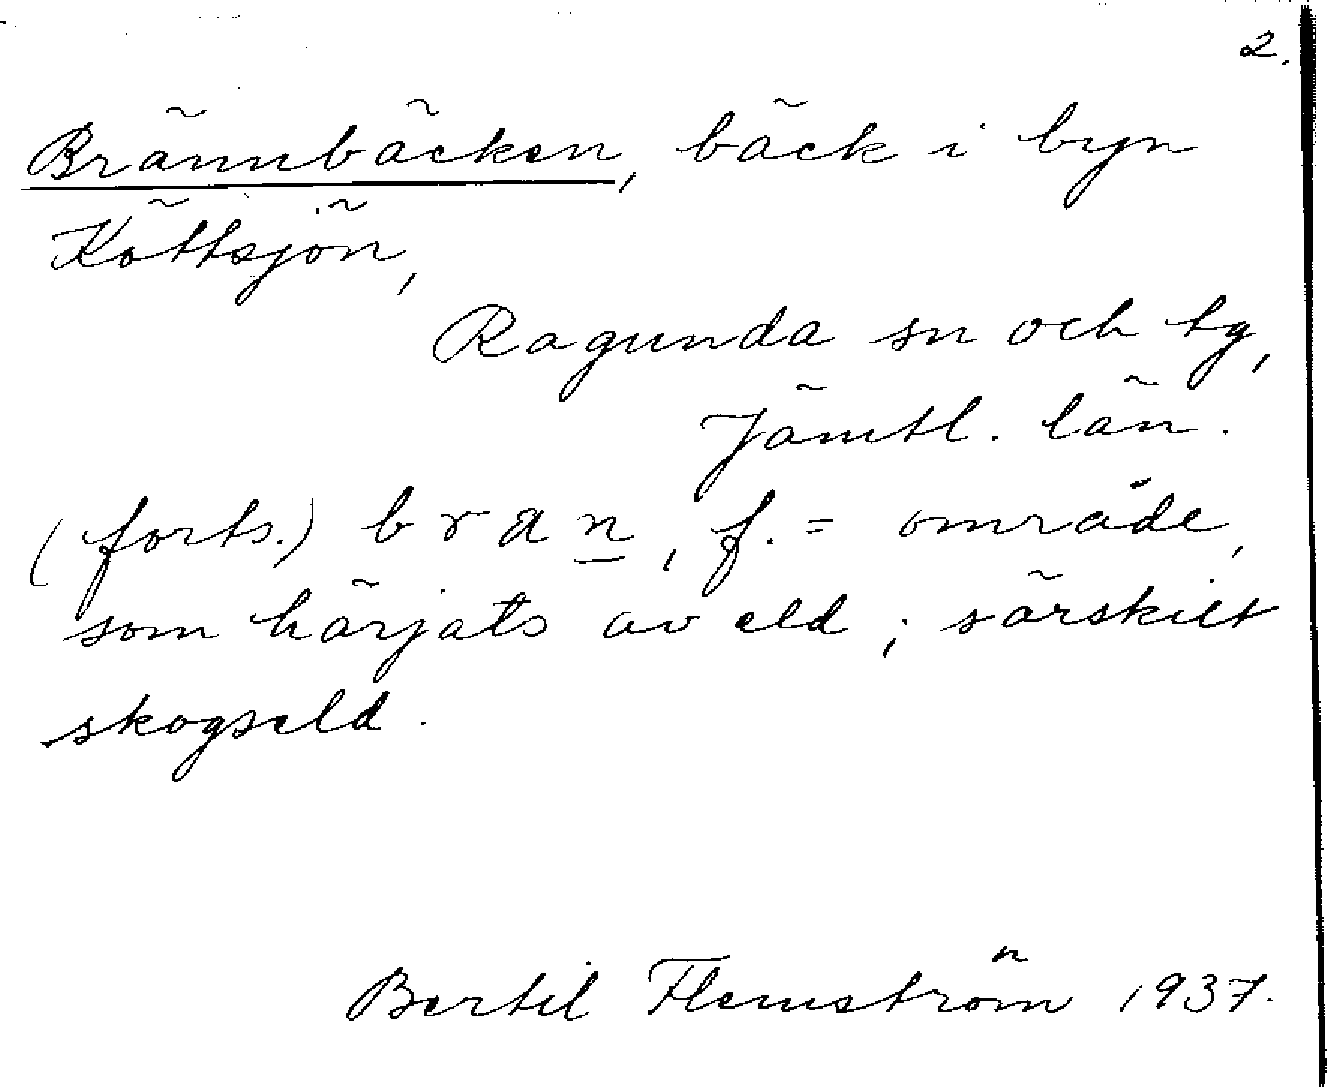 2.
Brännbäcken, bäck i byn
Köttsjön,
Ragunda sn och tg,
Jämtl. län.
(forts.) b r a n, f. = område,
som härjats av eld; särskilt
skogseld.
Bertil Flemström 1937.